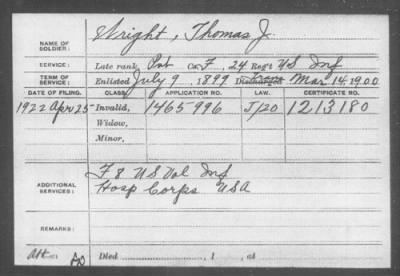 NAME OF SOLDIER: Wright, Thomas J.
SERVICE: Late rank Pvt Co. F, 24 Reg't US Inf
TERM OF SERVICE: Enlisted July 9, 1899 Discharged Trans Mar 14, 1900
DATE OF FILING. CLASS. APPLICATION NO. LAW. CERTIFICATE NO.
1922 Apr 25 Invalid, 1465996 J/20 1213180
Widow,
Minor,
ADDITIONAL SERVICES: F 8 US Vol Inf
Hosp Corps USA
REMARKS:
Died , 1 , at